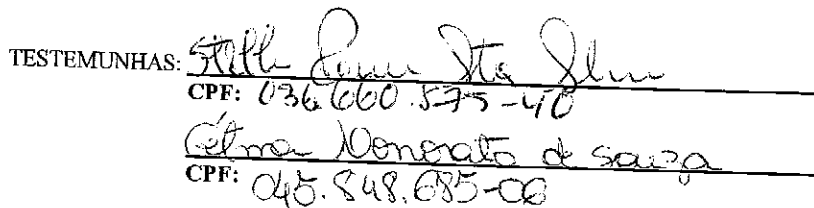 TESTEMUNHAS:
CPF: 036.660.575-40
Célma Honorato de Souza
CPF: 045.848.685-06